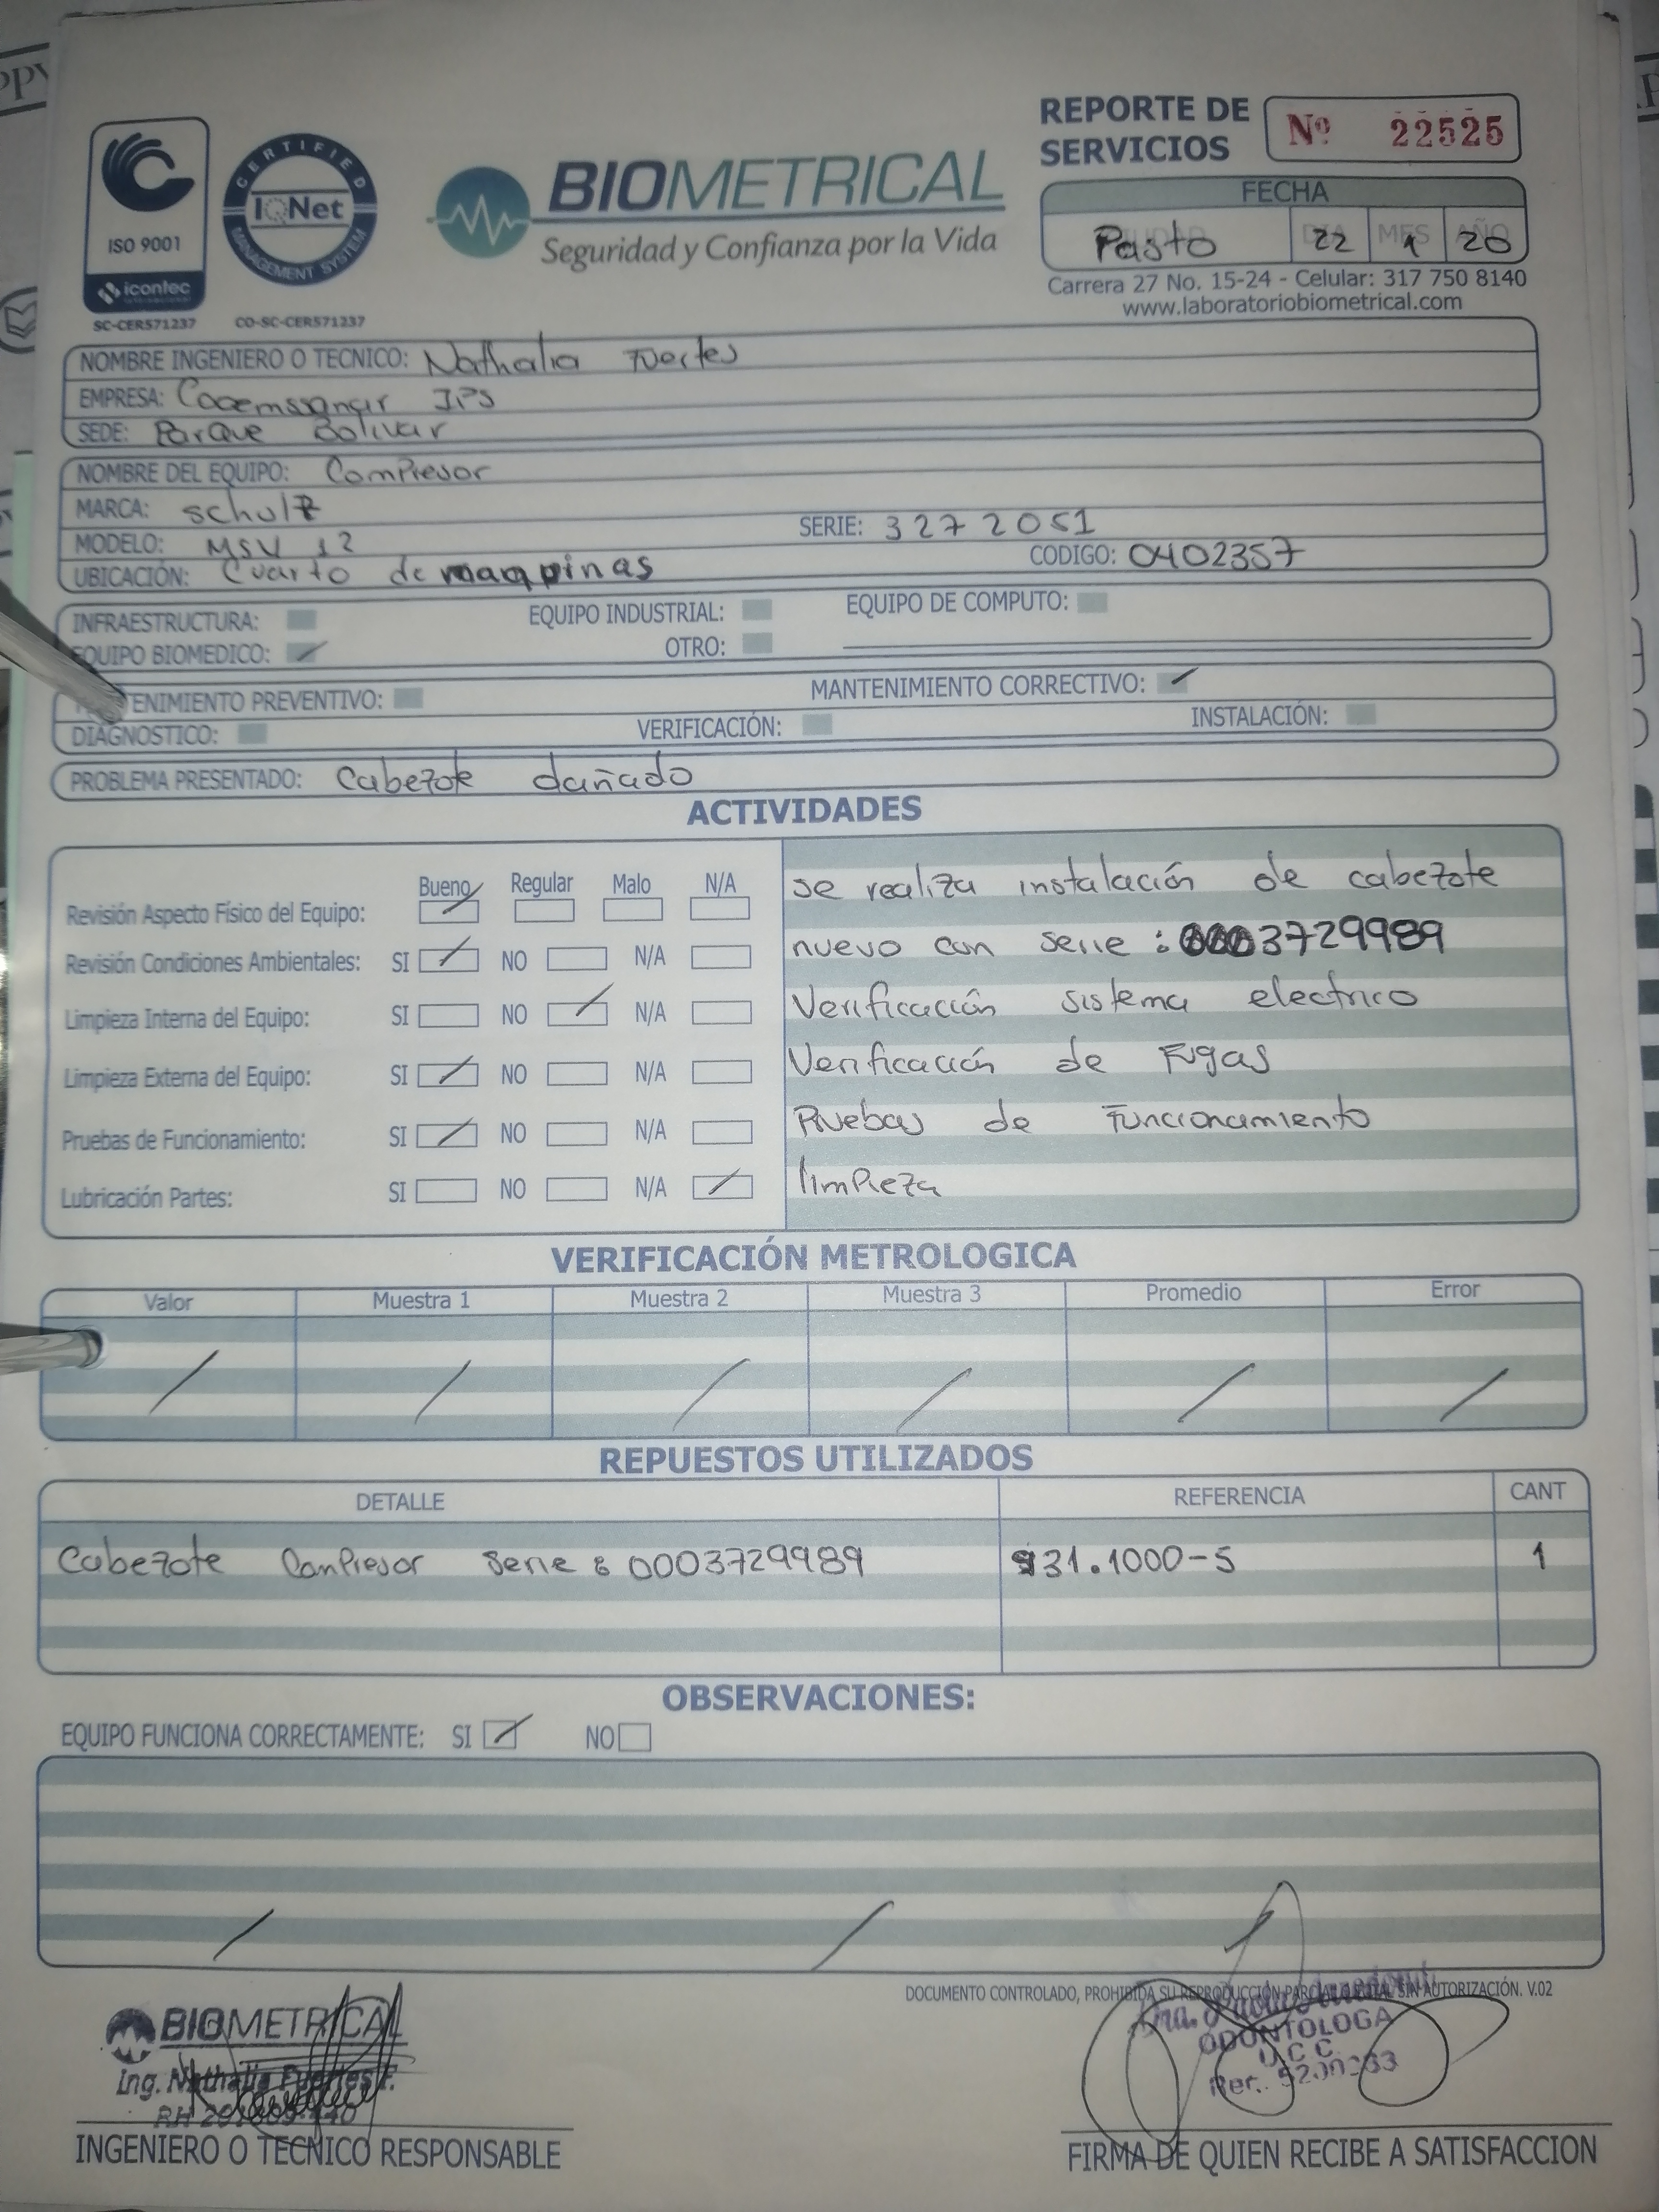 REPORTE DE
SERVICIOS
Nº 22525
ISO 9001
icontec
SC-CER571237
CERTIFIED
IQNet
MANAGEMENT SYSTEM
CO-SC-CER571237
BIOMETRICAL
Seguridad y Confianza por la Vida
FECHA
Pasto DIA 22 MES 1 AÑO 20
Carrera 27 No. 15-24 - Celular: 317 750 8140
www.laboratoriobiometrical.com
NOMBRE INGENIERO O TECNICO: Nathalia Fuertes
EMPRESA: Coemssanar IPS
SEDE: Parque Bolivar
NOMBRE DEL EQUIPO: Compresor
MARCA: schulz
MODELO: MSV 12 SERIE: 3272051
UBICACIÓN: Cuarto de maquinas CODIGO: 0402357
INFRAESTRUCTURA: EQUIPO INDUSTRIAL: EQUIPO DE COMPUTO:
EQUIPO BIOMEDICO: OTRO:
TENIMIENTO PREVENTIVO: MANTENIMIENTO CORRECTIVO:
DIAGNOSTICO: VERIFICACIÓN: INSTALACIÓN:
PROBLEMA PRESENTADO: Cabezote dañado
ACTIVIDADES
Bueno Regular Malo N/A
Revisión Aspecto Físico del Equipo:
Revisión Condiciones Ambientales: SI NO N/A
Limpieza Interna del Equipo: SI NO N/A
Limpieza Externa del Equipo: SI NO N/A
Pruebas de Funcionamiento: SI NO N/A
Lubricación Partes: SI NO N/A
se realiza instalación de cabezote
nuevo con serie : 0003729989
Verificación sistema electrico
Verificación de Fugas
Pruebas de Funcionamiento
limpieza
VERIFICACIÓN METROLOGICA
Valor Muestra 1 Muestra 2 Muestra 3 Promedio Error
REPUESTOS UTILIZADOS
DETALLE REFERENCIA CANT
Cabezote Compresor Serie : 0003729989 931.1000-5 1
OBSERVACIONES:
EQUIPO FUNCIONA CORRECTAMENTE: SI NO
DOCUMENTO CONTROLADO, PROHIBIDA SU REPRODUCCIÓN PARCIAL O TOTAL SIN AUTORIZACIÓN. V.02
BIOMETRICAL
Ing. Nathalia Fuertes F.
Dra.
ODONTOLOGA
U C C
INGENIERO O TECNICO RESPONSABLE
FIRMA DE QUIEN RECIBE A SATISFACCION